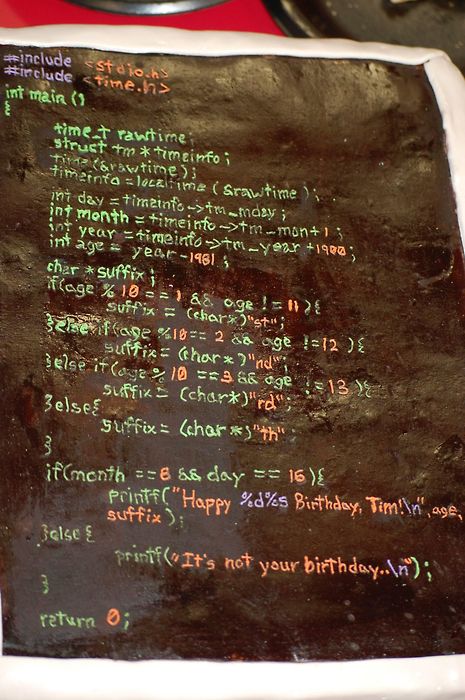 #include <stdio.h>
#include <time.h>
int main ()
{
time_t rawtime;
struct tm * timeinfo;
time(&rawtime);
timeinfo = localtime ( &rawtime );
int day = timeinfo->tm_mday;
int month = timeinfo ->tm_mon+1;
int year = timeinfo->tm_year +1900;
int age = year -1981;
char *suffix;
if(age % 10 == 1 && age != 11){
suffix = (char*)"st";
}else if(age %10== 2 && age !=12 ){
suffix= (char*)"nd";
}else if(age % 10 ==3 && age !=13 ){
suffix= (char*)"rd";
}else{
suffix= (char*)"th"
}
if(month ==6 && day == 16){
printf("Happy %d%s Birthday, Tim!\n",age,
suffix);
}else{
printf("It's not your birthday..\n");
}
return 0;